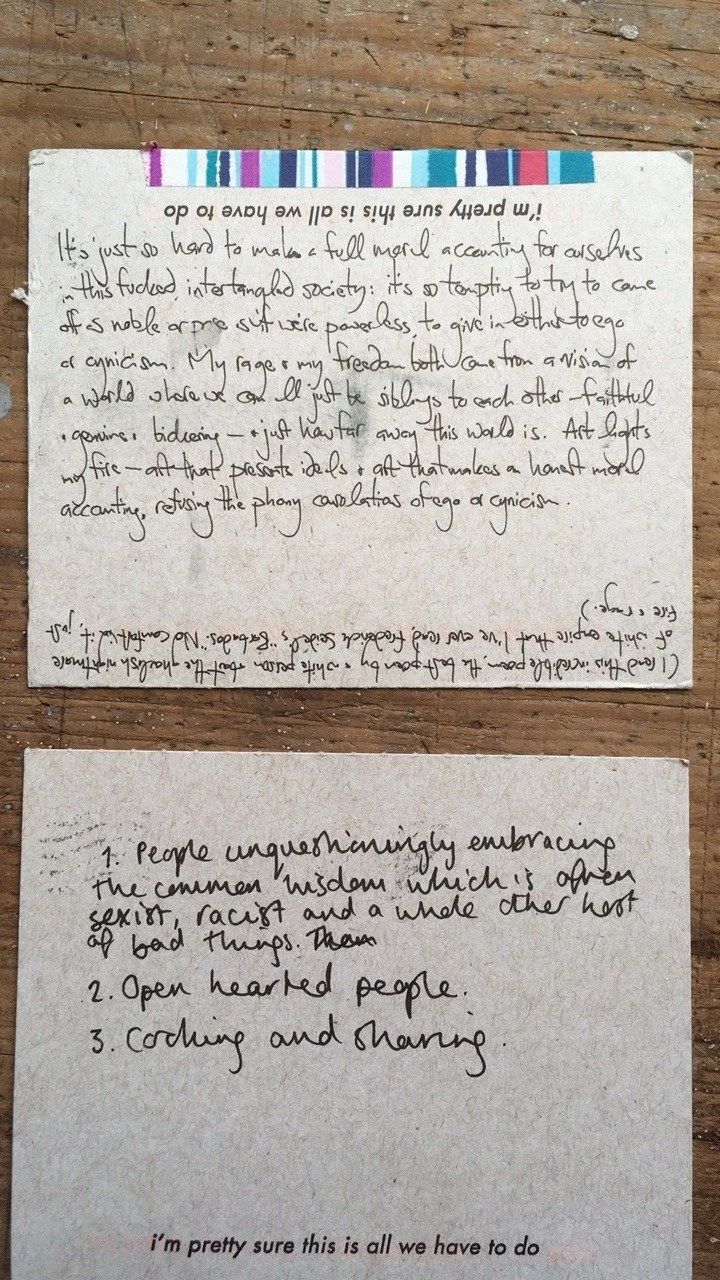 i'm pretty sure this is all we have to do
It's just so hard to make a full moral accounting for ourselves
in this fucked, intertangled society: it's so tempting to try to come
off as noble or pure as if we're powerless, to give in either to ego
or cynicism. My rage & my freedom both come from a vision of
a world where we can all just be siblings to each other — faithful
& genuine & bickering — & just how far away this world is. Art lights
my fire — art that presents ideals & art that makes an honest moral
accounting, refusing the phony consolations of ego or cynicism.
(I read this incredible poem, the best poem by a white person about the ghoulish nightmare
of white empire that I've ever read, Frederick Seidel's "Barbados." No comfort in it, just
fire & rage.)
1. People unquestioningly embracing
the common wisdom which is often
sexist, racist and a whole other host
of bad things.
2. Open hearted people.
3. Cooking and sharing.
i'm pretty sure this is all we have to do